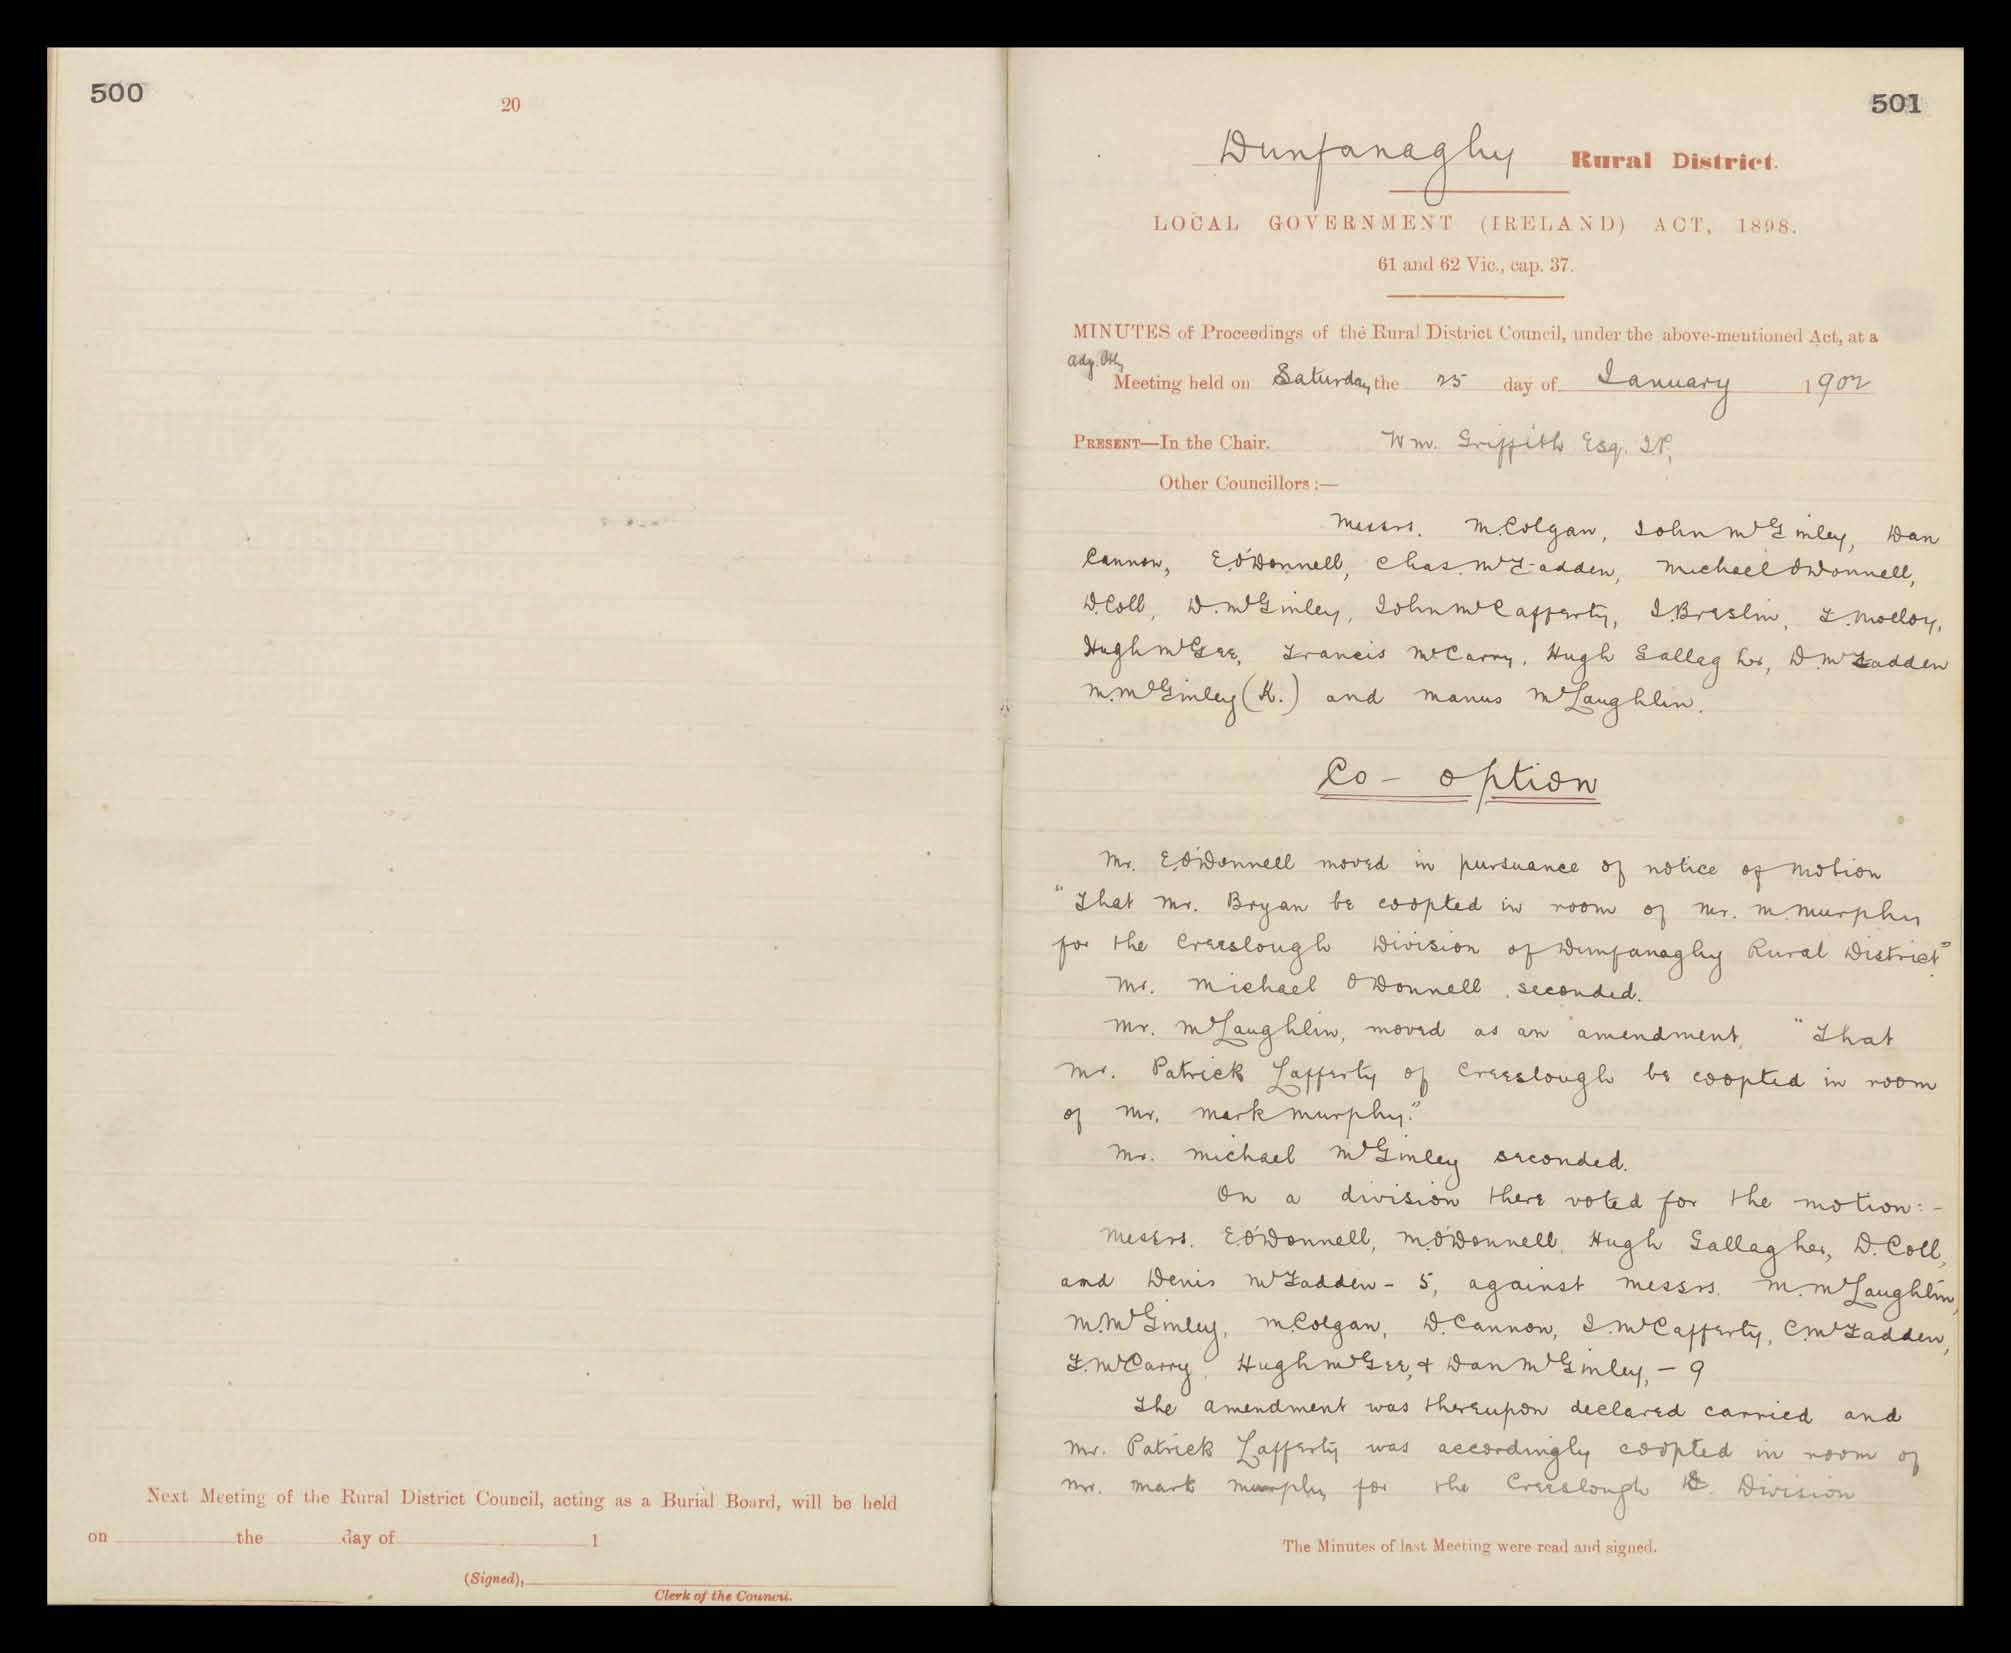 500
20
Next Meeting of the Rural District Council, acting as a Burial Board, will be held
on the day of 1
(Signed),
Clerk of the Council.
501
Dunfanaghy Rural District.
LOCAL GOVERNMENT (IRELAND) ACT, 1898.
61 and 62 Vic., cap. 37.
MINUTES of Proceedings of the Rural District Council, under the above-mentioned Act, at a
Adj.
Meeting held on Saturday the 25 day of January 1902
PRESENT—In the Chair. Wm. Griffith Esq. J.P.,
Other Councillors:—
Messrs. M. Colgan, John McGinley, Dan
Cannon, E. O'Donnell, Chas. McFadden, Michael O'Donnell,
D. Coll, D. McGinley, John McCafferty, J. Breslin, F. Molloy,
Hugh McGee, Francis McCarry, Hugh Gallagher, D. McFadden
M. McGinley (K.) and Manus McLaughlin.
Co-option
Mr. E. O'Donnell moved in pursuance of notice of motion
"That Mr. Bryan be coopted in room of Mr. M. Murphy
for the Creeslough Division of Dunfanaghy Rural District."
Mr. Michael O'Donnell seconded.
Mr. McLaughlin, moved as an amendment, "That
Mr. Patrick Lafferty of Creeslough be coopted in room
of Mr. Mark Murphy."
Mr. Michael McGinley seconded.
On a division there voted for the motion:-
Messrs. E. O'Donnell, M. O'Donnell, Hugh Gallagher, D. Coll,
and Denis McFadden - 5, against Messrs. M. McLaughlin,
M. McGinley, M. Colgan, D. Cannon, J. McCafferty, C. McFadden,
F. McCarry, Hugh McGee, & Dan McGinley, - 9
The amendment was thereupon declared carried and
Mr. Patrick Lafferty was accordingly coopted in room of
Mr. Mark Murphy for the Creeslough Division
The Minutes of last Meeting were read and signed.